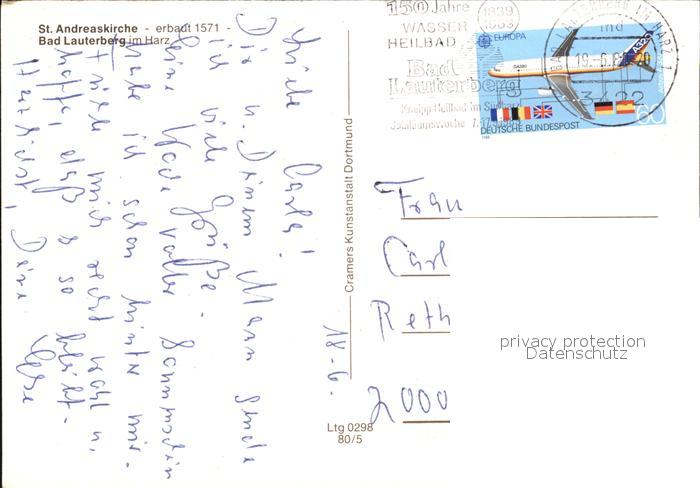 St. Andreaskirche - erbaut 1571 -
Bad Lauterberg im Harz
150 Jahre
WASSER
HEILBAD
1839
1989
Bad
Lauterberg
Kneipp-Heilbad im Südharz
Jubiläumswoche 7.-17. Juli
BAD LAUTERBERG IM HARZ 1
3422
EUROPA
A320
60
DEUTSCHE BUNDESPOST
18.6.
Dir u. Deinem Mann sende
ich viele Grüße.
Eine Woche voller Sonnenschein
habe ich schon hinter mir.
Fühle mich recht wohl u.
hoffe, daß es so bleibt.
Herzlichst, Deine
Cramers Kunstanstalt Dortmund
Ltg 0298
80/5
Frau
Carl
Reth
2000
privacy protection
Datenschutz